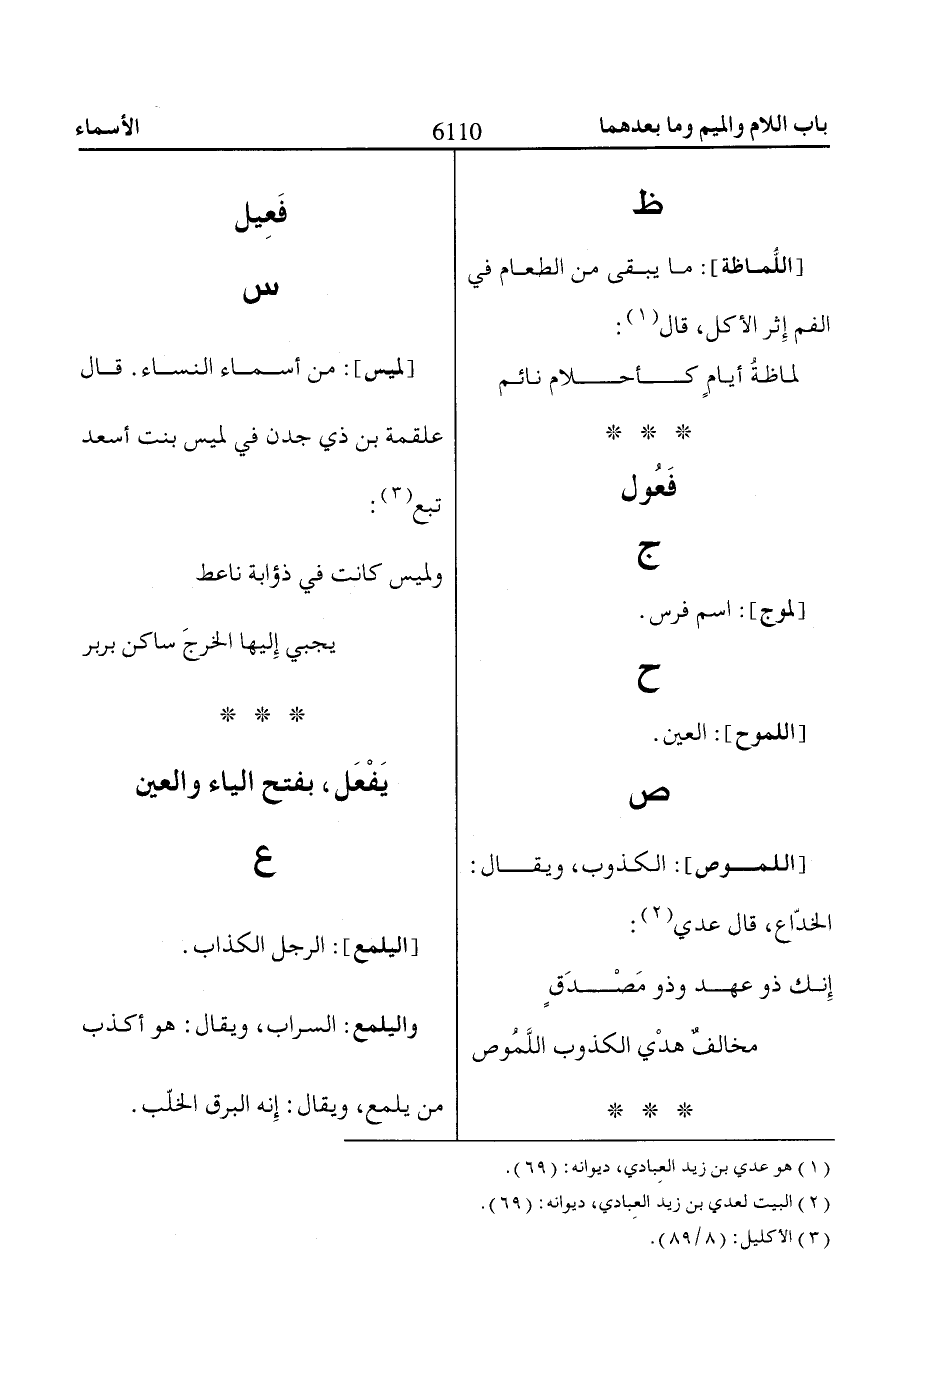 باب اللام والميم وما بعدهما
6110
الأسماء
ظ
[اللُّماظة]: ما يبقى من الطعام في
الفم إثر الأكل، قال(١):
لماظةُ أيامٍ كأحلام نائم
* * *
فَعُول
ج
[لموج]: اسم فرس.
ح
[اللموح]: العين.
ص
[اللموص]: الكذوب، ويقال:
الخدّاع، قال عدي(٢):
إنك ذو عهد وذو مَصْدَقٍ
مخالفٌ هدْي الكذوب اللَّمُوص
* * *
فَعِيل
س
[لميس]: من أسماء النساء. قال
علقمة بن ذي جدن في لميس بنت أسعد
تبع(٣):
ولميس كانت في ذؤابة ناعط
يجبي إليها الخرجَ ساكن بربر
* * *
يَفْعَل، بفتح الياء والعين
ع
[اليلمع]: الرجل الكذاب.
واليلمع: السراب، ويقال: هو أكذب
من يلمع، ويقال: إنه البرق الخلّب.
(١) هو عدي بن زيد العِبادي، ديوانه: (٦٩).
(٢) البيت لعدي بن زيد العِبادي، ديوانه: (٦٩).
(٣) الاكليل: (٨٩/٨).